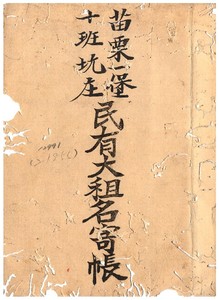 苗栗一堡
十班坑庄
民有大租名寄帳